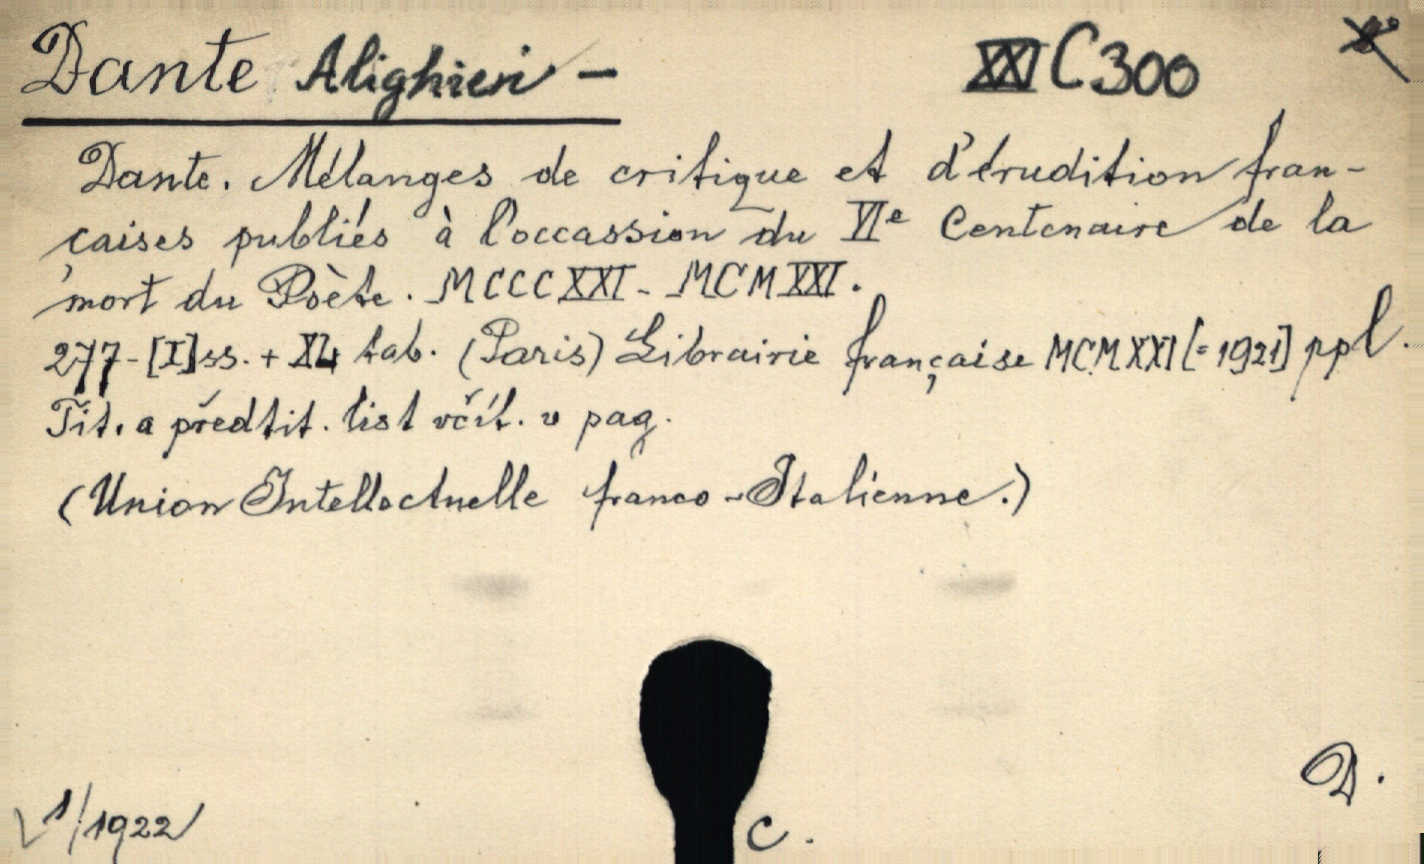 Dante Alighieri - XXI C 300
Dante. Mélanges de critique et d'érudition fran-
çaises publiés à l'occassion du VIe Centenaire de la
mort du Poète. MCCCXXI - MCMXXI.
277-[I] ss. + XL tab. (Paris) Librairie française MCMXXI [= 1921] ppl.
Tit. a předtit. list včít. v pag.
(Union Intellectuelle franco-Italienne.)
D.
1/1922 C.